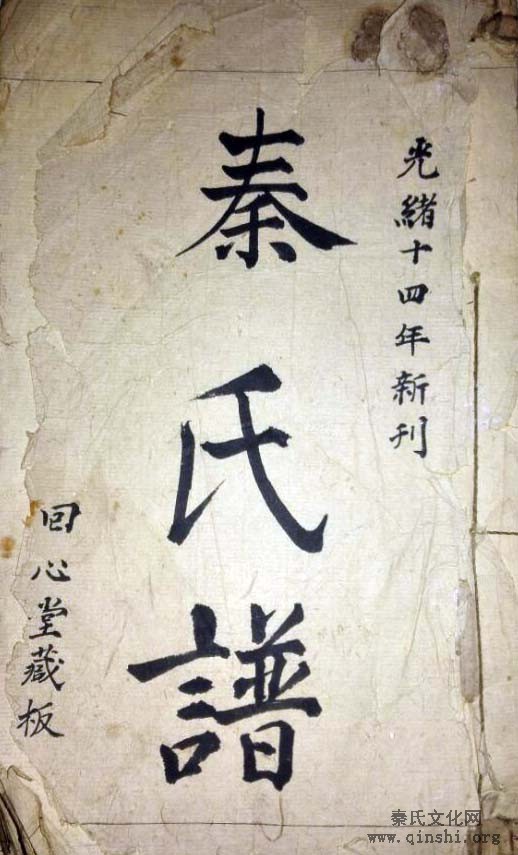 光緒十四年新刊
秦氏譜
回心堂藏板
秦氏文化网
www.qinshi.org